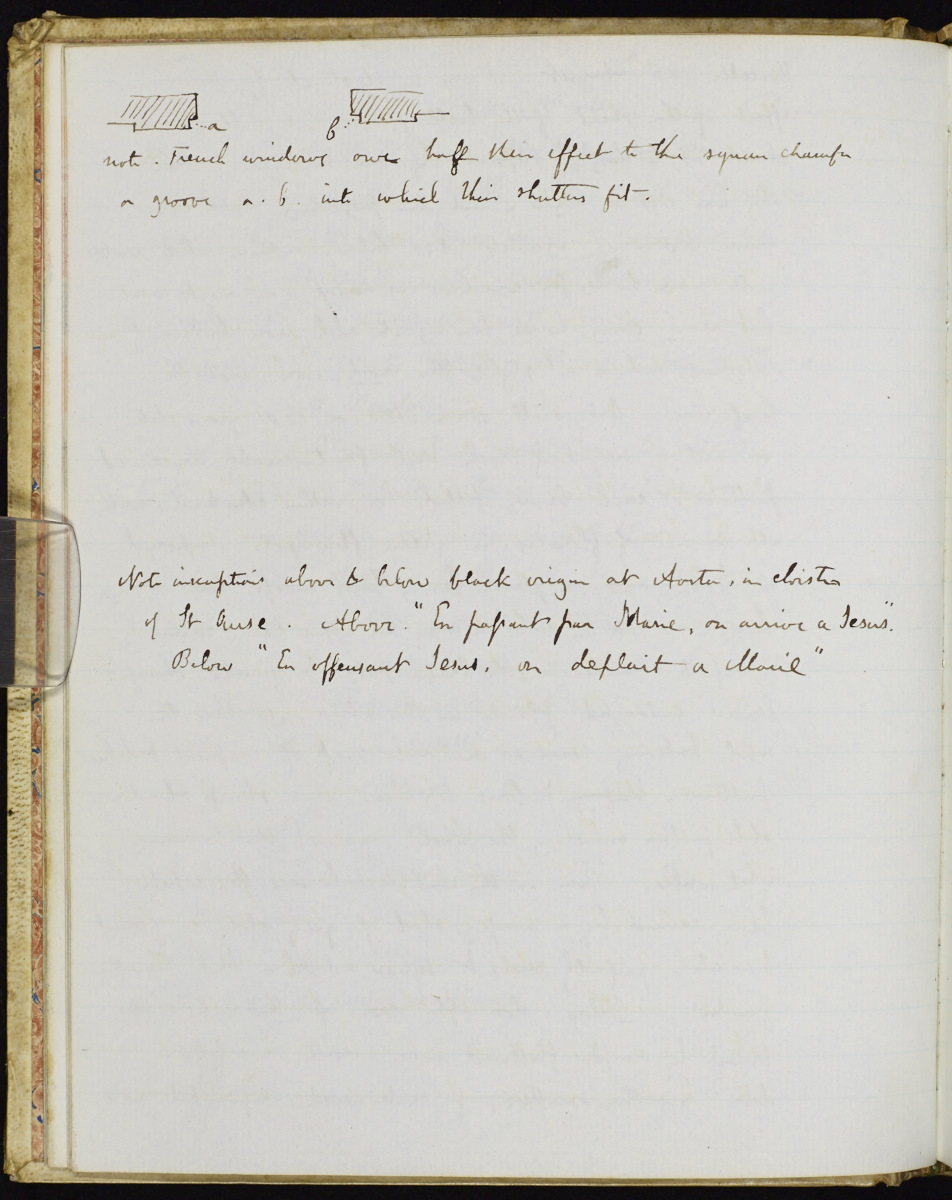 a b
note. French windows owe half their effect to the square chamfer
or groove a. b. into which their shutters fit.
Note inscriptions above & below black virgin at Aosta, in cloister
of St Ourse. Above. "En passant par Marie, on arrive a Jesus".
Below "En offensant Jesus, on deplait a Marie"